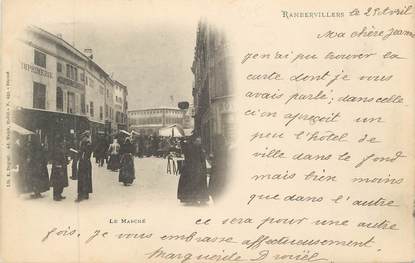 RAMBERVILLERS le 25 Avril
Ma chère Jeanne
je n'ai pu trouver la
carte dont je vous
avais parlé; dans celle
ci l'on aperçoit un
peu l'hôtel de
ville dans le fond
mais bien moins
que dans l'autre
ce sera pour une autre
fois, je vous embrasse affectueusement
Marguerite
IMPRIMERIE
LE MARCHÉ